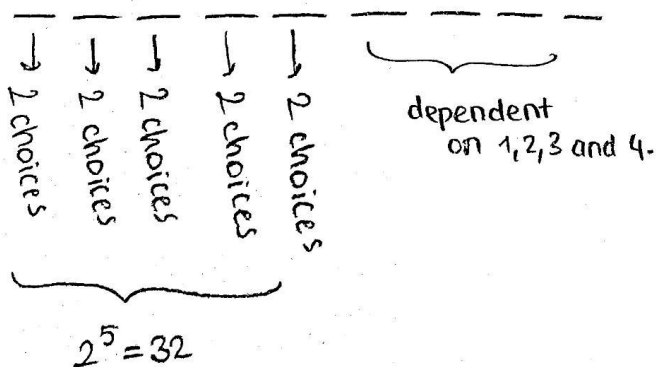 2 choices 2 choices 2 choices 2 choices 2 choices
dependent
on 1,2,3 and 4.
2^5 = 32